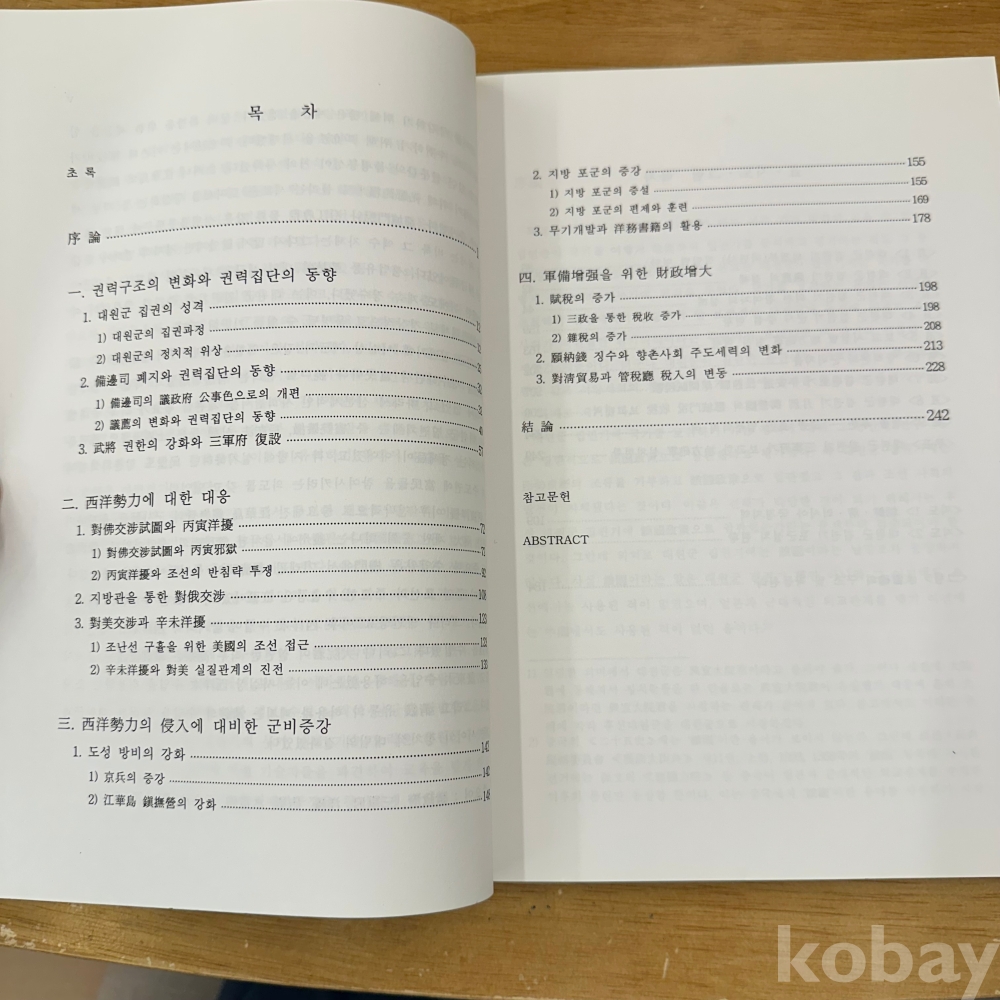 목 차
초 록
序 論 1
一. 권력구조의 변화와 권력집단의 동향
1. 대원군 집권의 성격 12
1) 대원군의 집권과정 12
2) 대원군의 정치적 위상
2. 備邊司 폐지와 권력집단의 동향
1) 備邊司의 議政府 公事色으로의 개편
2) 議薦의 변화와 권력집단의 동향
3. 武將 권한의 강화와 三軍府 復設 57
二. 西洋勢力에 대한 대응
1. 對佛交涉試圖와 丙寅洋擾 72
1) 對佛交涉試圖와 丙寅邪獄
2) 丙寅洋擾와 조선의 반침략 투쟁 92
2. 지방관을 통한 對俄交涉 108
3. 對美交涉과 辛未洋擾 123
1) 조난선 구휼을 위한 美國의 조선 접근 123
2) 辛未洋擾와 對美 실질관계의 진전
三. 西洋勢力의 侵入에 대비한 군비증강
1. 도성 방비의 강화 142
1) 京兵의 증강 142
2) 江華島 鎭撫營의 강화
2. 지방 포군의 증강 155
1) 지방 포군의 증설 155
2) 지방 포군의 편제와 훈련 169
3. 무기개발과 洋務書籍의 활용 178
四. 軍備增强을 위한 財政增大
1. 賦稅의 증가 198
1) 三政을 통한 稅收 증가 198
2) 雜稅의 증가 208
2. 願納錢 징수와 향촌사회 주도세력의 변화 213
3. 對淸貿易과 管稅廳 稅入의 변동 228
結 論 242
참고문헌
ABSTRACT
kobay